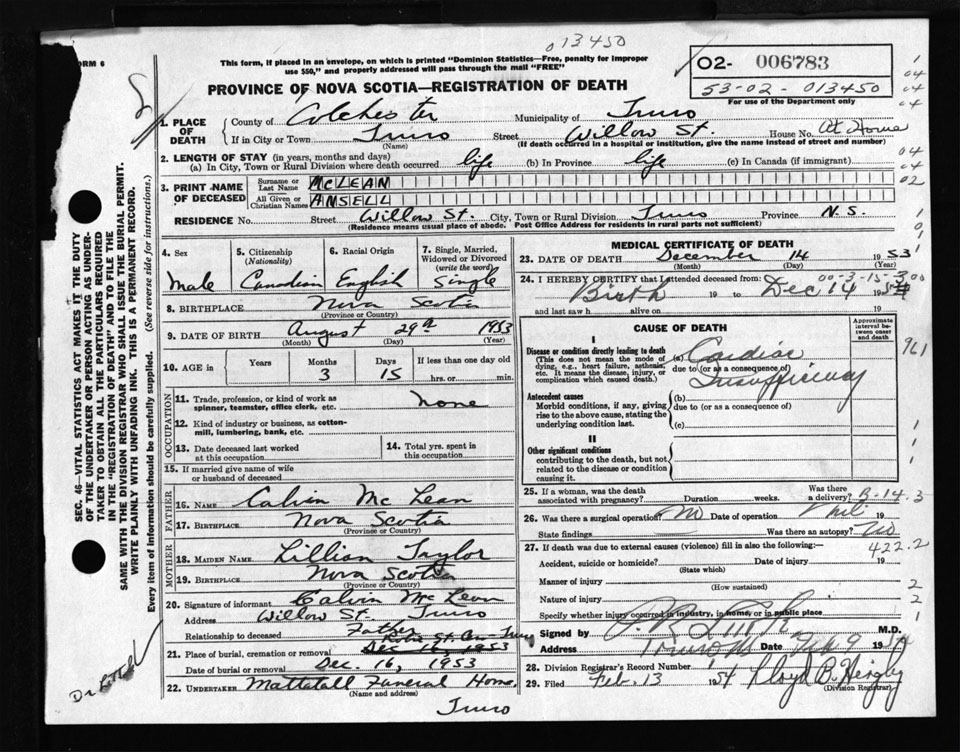 013450
ORM 6
This form, if placed in an envelope, on which is printed "Dominion Statistics—Free, penalty for improper
use $50," and properly addressed will pass through the mail "FREE"
O2- 006783
53-02-013450
For use of the Department only
PROVINCE OF NOVA SCOTIA—REGISTRATION OF DEATH
1. PLACE OF DEATH
County of Colchester Municipality of Truro
If in City or Town Truro Street Willow St. House No. At Home
(Name) (If death occurred in a hospital or institution, give the name instead of street and number)
2. LENGTH OF STAY (in years, months and days)
(a) In City, Town or Rural Division where death occurred life (b) In Province life (c) In Canada (if immigrant)
3. PRINT NAME OF DECEASED
Surname or Last Name McLEAN
All Given or Christian Names ANSELL
RESIDENCE No. Street Willow St. City, Town or Rural Division Truro Province N.S.
(Residence means usual place of abode. Post Office Address for residents in rural parts not sufficient)
4. Sex
Male
5. Citizenship (Nationality)
Canadian
6. Racial Origin
English
7. Single, Married, Widowed or Divorced (write the word)
Single
8. BIRTHPLACE Nova Scotia
(Province or Country)
9. DATE OF BIRTH August 29th 1953
(Month) (Day) (Year)
10. AGE in
Years Months Days If less than one day old
3 15 hrs. or min.
OCCUPATION
11. Trade, profession, or kind of work as spinner, teamster, office clerk, etc. none
12. Kind of industry or business, as cotton-mill, lumbering, bank, etc.
13. Date deceased last worked at this occupation
14. Total yrs. spent in this occupation
15. If married give name of wife or husband of deceased
FATHER
16. NAME Calvin McLean
17. BIRTHPLACE Nova Scotia
(Province or Country)
MOTHER
18. MAIDEN NAME Lillian Taylor
19. BIRTHPLACE Nova Scotia
(Province or Country)
20. Signature of informant Calvin McLean
Address Willow St. Truro
Relationship to deceased Father
21. Place of burial, cremation or removal Robie St. Cem Truro
Dec 16, 1953
Date of burial or removal Dec. 16, 1953
22. UNDERTAKER Mattatall Funeral Home.
(Name and address)
Truro
MEDICAL CERTIFICATE OF DEATH
23. DATE OF DEATH December 14 1953
(Month) (Day) (Year)
24. I HEREBY CERTIFY that I attended deceased from:
00-3-15-3
Birth 19 to Dec 14 195
and last saw h alive on 19
CAUSE OF DEATH
Approximate interval between onset and death
I
Disease or condition directly leading to death
(This does not mean the mode of dying, e.g., heart failure, asthenia, etc. It means the disease, injury, or complication which caused death.)
(a) Cardiac
due to (or as a consequence of)
Insufficiency
Antecedent causes
Morbid conditions, if any, giving rise to the above cause, stating the underlying condition last.
(b)
due to (or as a consequence of)
(c)
II
Other significant conditions
contributing to the death, but not related to the disease or condition causing it.
25. If a woman, was the death associated with pregnancy? Duration weeks. Was there a delivery? B-14.3
26. Was there a surgical operation? No Date of operation 19
State findings Was there an autopsy? No
27. If death was due to external causes (violence) fill in also the following:— 422.2
Accident, suicide or homicide? Date of injury 19
(State which)
Manner of injury
(How sustained)
Nature of injury
Specify whether injury occurred in industry, in home, or in public place
Signed by M.D.
Address Truro NS Date Feb 9 1954
28. Division Registrar's Record Number 1
29. Filed Feb. 13 1954 Lloyd B.
(Division Registrar)
SEC. 46—VITAL STATISTICS ACT MAKES IT THE DUTY
OF THE UNDERTAKER OR PERSON ACTING AS UNDER-
TAKER TO OBTAIN ALL THE PARTICULARS REQUIRED
IN THE "REGISTRATION OF DEATH" AND TO FILE THE
SAME WITH THE DIVISION REGISTRAR WHO SHALL ISSUE THE BURIAL PERMIT.
WRITE PLAINLY WITH UNFADING INK. THIS IS A PERMANENT RECORD.
Every item of information should be carefully supplied. (See reverse side for instructions.)